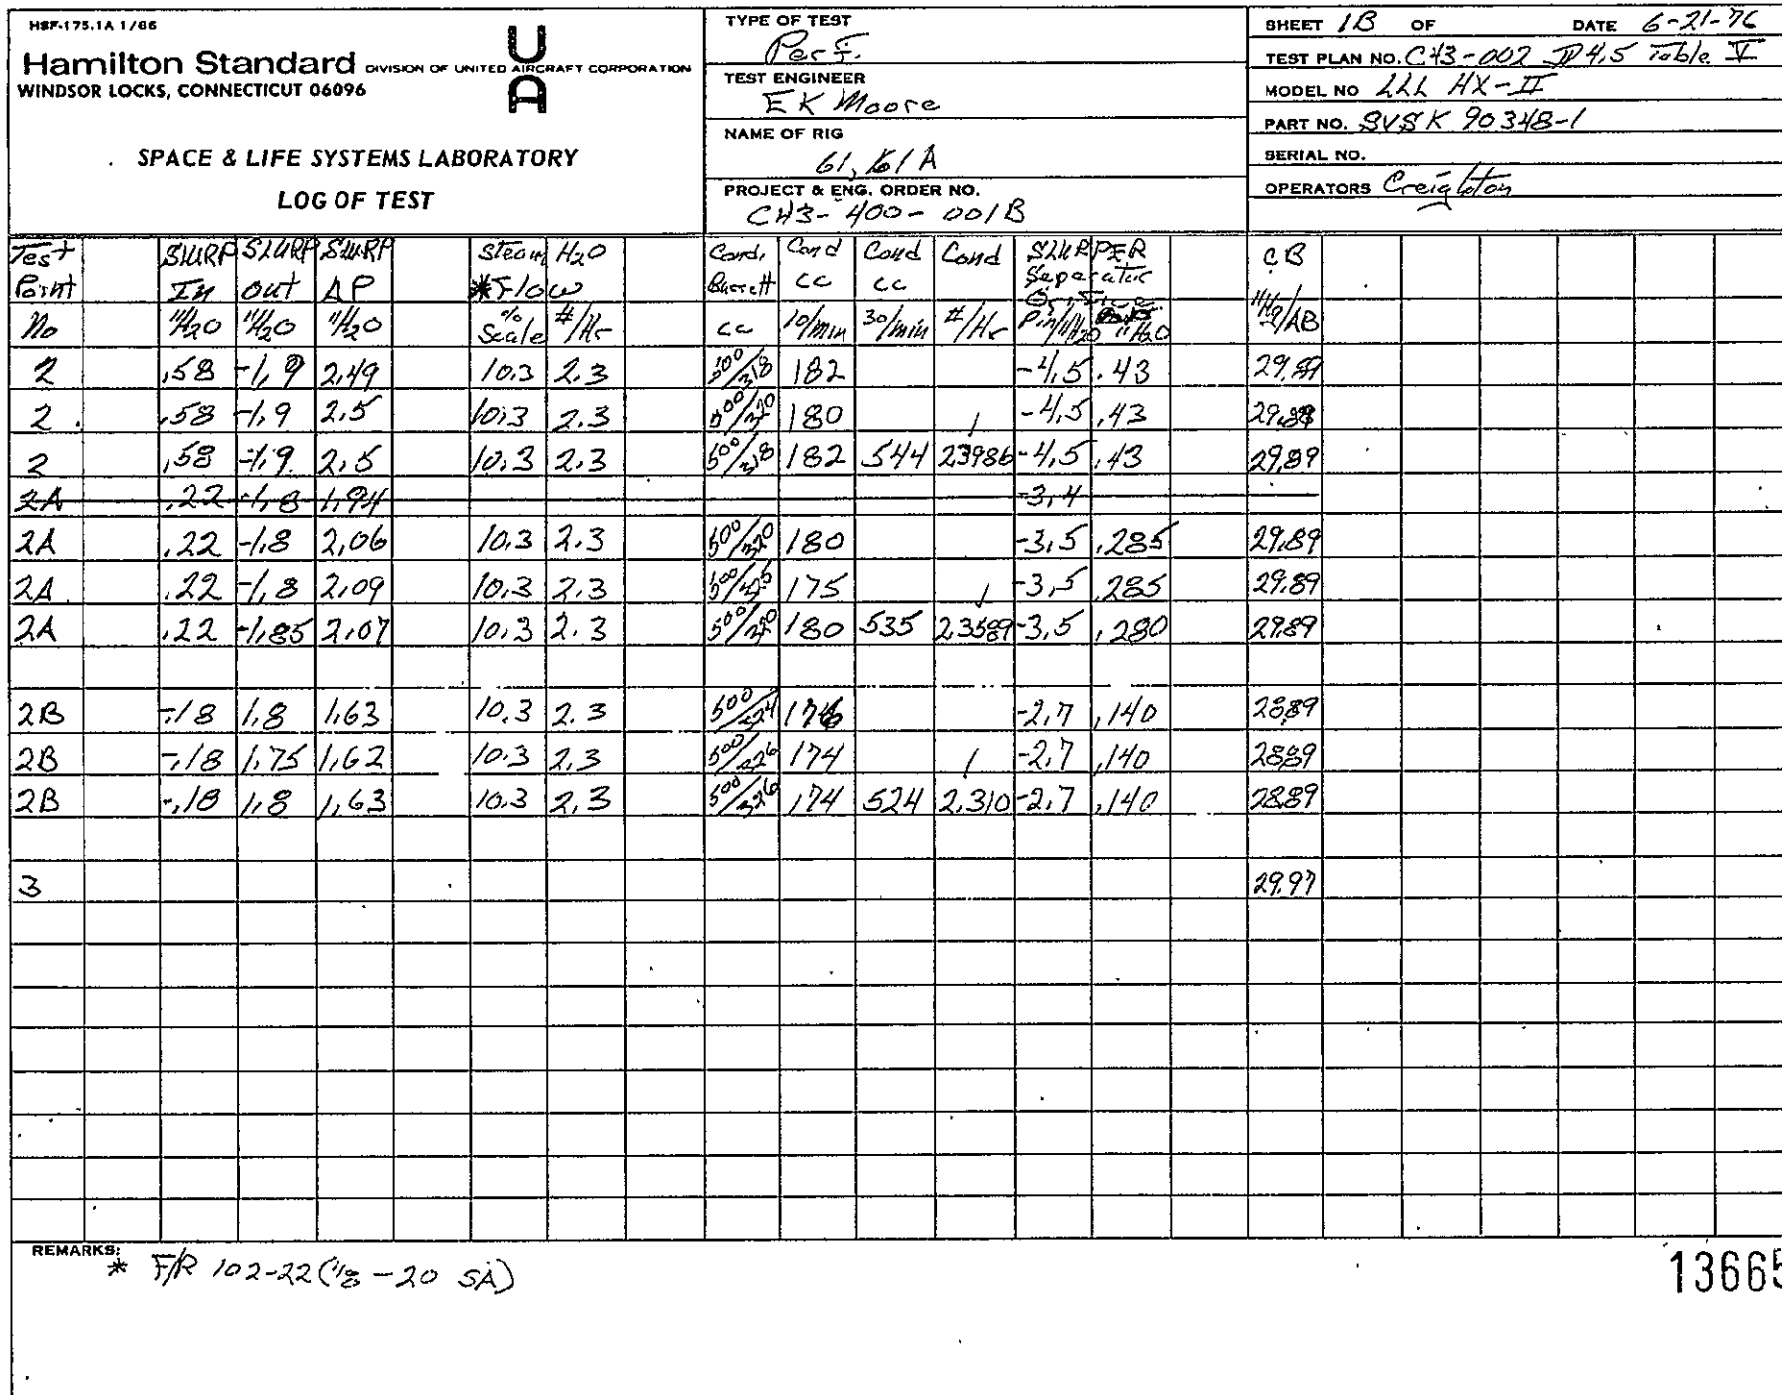 HSF-175.1A 1/66
Hamilton Standard DIVISION OF UNITED AIRCRAFT CORPORATION
WINDSOR LOCKS, CONNECTICUT 06096
U
A
SPACE & LIFE SYSTEMS LABORATORY
LOG OF TEST
TYPE OF TEST
Perf.
TEST ENGINEER
E K Moore
NAME OF RIG
61, 161A
PROJECT & ENG. ORDER NO.
CH3-400-001B
SHEET 1B OF DATE 6-21-76
TEST PLAN NO. CH3-002 4.5 Table V
MODEL NO LLL HX-II
PART NO. SVSK 90348-1
SERIAL NO.
OPERATORS Creighton
Test SLURP SLURP SLURP Steam H2O Cond. Cond Cond Cond SLURPER CB
Point In Out ΔP *Flow Burett cc cc Separator
Orifice
No "H2O "H2O "H2O % Scale #/Hr cc 10/min 30/min #/Hr P in/"H2O "H2O "Hg/AB
2 .58 -1.9 2.49 10.3 2.3 500/318 182 -4.5 .43 29.89
2 .58 -1.9 2.5 10.3 2.3 500/320 180 -4.5 .43 29.89
2 .58 -1.9 2.5 10.3 2.3 500/318 182 544 2.3986 -4.5 .43 29.89
2A .22 -1.8 1.94 -3.4
2A .22 -1.8 2.06 10.3 2.3 500/320 180 -3.5 .285 29.89
2A .22 -1.8 2.09 10.3 2.3 500/325 175 -3.5 .285 29.89
2A .22 -1.85 2.07 10.3 2.3 500/320 180 535 2.3589 -3.5 .280 29.89
2B -.18 1.8 1.63 10.3 2.3 500/324 176 -2.7 .140 28.89
2B -.18 1.75 1.62 10.3 2.3 500/326 174 -2.7 .140 28.89
2B -.18 1.8 1.63 10.3 2.3 500/326 174 524 2.310 -2.7 .140 28.89
3 29.97
REMARKS:
* F/R 102-22 (1/8 - 20 SA)
13665